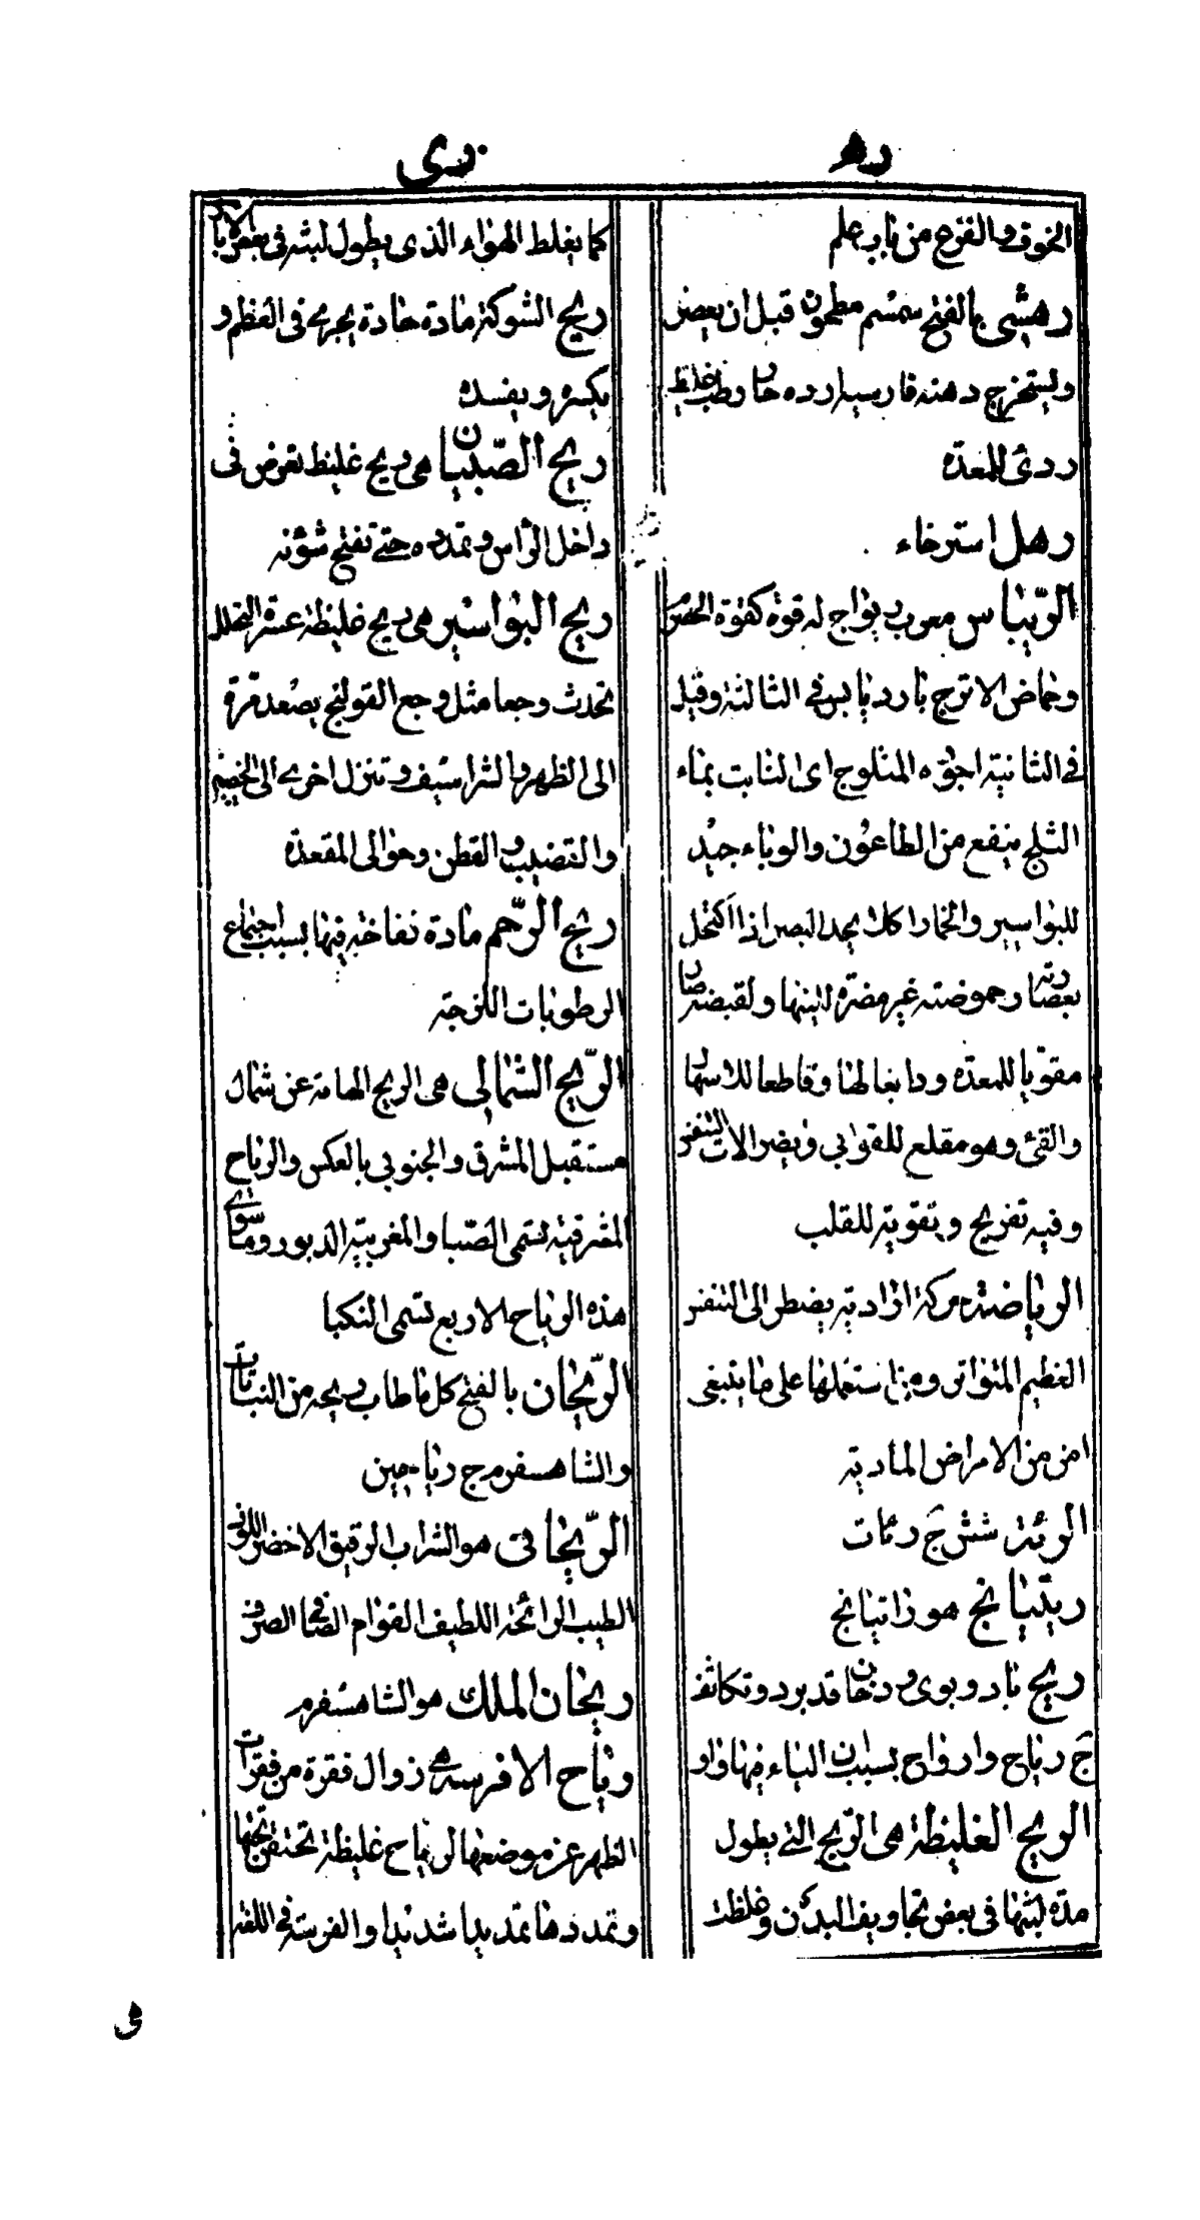 ره
الخوف والفزع من باب علم
رهشى بالفتح سمسم مطحون قبل ان يعصر
ويستخرج دهنه فارسيه ارده حار رطب غليظ
ردئ للمعدة
رهل استرخاء
الريباس معرب ريواج له قوة كقوة الحصرم
وحماض الاترج بارد يابس فى الثالثة وقيل
فى الثانية اجوده المثلوج اى النابت بماء
الثلج ينفع من الطاعون والوباء جيد
للبواسير والخمار اكله يحد البصر اذا اكتحل
بعصارته وحموضته غير مضرة للينها ولقبضه صار
مقويا للمعدة ودابغا لها وقاطعا للاسهال
والقئ وهو مقلع للقوابى ويضر الات التنفس
وفيه تفريح وتقوية للقلب
الرياضة حركة ارادية يضطر الى التنفس
العظيم المتواتر ومن استعملها على ما ينبغى
امن من الامراض المادية
الرئة شش ج رئات
ريتيانج هو راتيانج
ريح باد وبوى ودخان قد برد وتكاثف
ج رياح وارواح بسبب ان الياء فيها واو
الريح الغليظة هى الريح التى يطول
مدة لبثها فى بعض تجاويف البدن وغلظت
رى
كما يغلظ الهواء الذى يطول لبثه فى بعض الابار
ريح الشوكة مادة حادة يجرى فى العظم و
يكسره ويفسده
ريح الصبيان هى ريح غليظ تعرض فى
داخل الراس وتمدده حتى تفتح شؤنه
ريح البواسير هى ريح غليظة عسرة التحلل
تحدث وجعا مثل وجع القولنج يصعد مرة
الى الظهر والشراسيف وتنزل اخرى الى الخصية
والقضيب والقطن وحوالى المقعدة
ريح الرحم مادة نفاخة فيها بسبب اجتماع
الرطوبات اللزجة
الريح الشمالى هى الريح الهابة عن شمال
مستقبل المشرق والجنوبى بالعكس والرياح
المشرقية تسمى الصبا والمغربية الدبور وما سوى
هذه الرياح الاربع تسمى النكبا
الريحان بالفتح كل ما طاب ريحه من النباتات
والشاهسفرم ج رياحين
الريحانى هو الشراب الرقيق الاخضر اللون
الطيب الرائحة اللطيف القوام الصافى الصرف
ريحان الملك هو الشاهسفرم
رياح الافرسة هى زوال فقرة من فقرات
الظهر عن موضعها لرياح غليظة تحتقن تحتها
وتمددها تمديدا شديدا والفرسة فى اللغة
هى